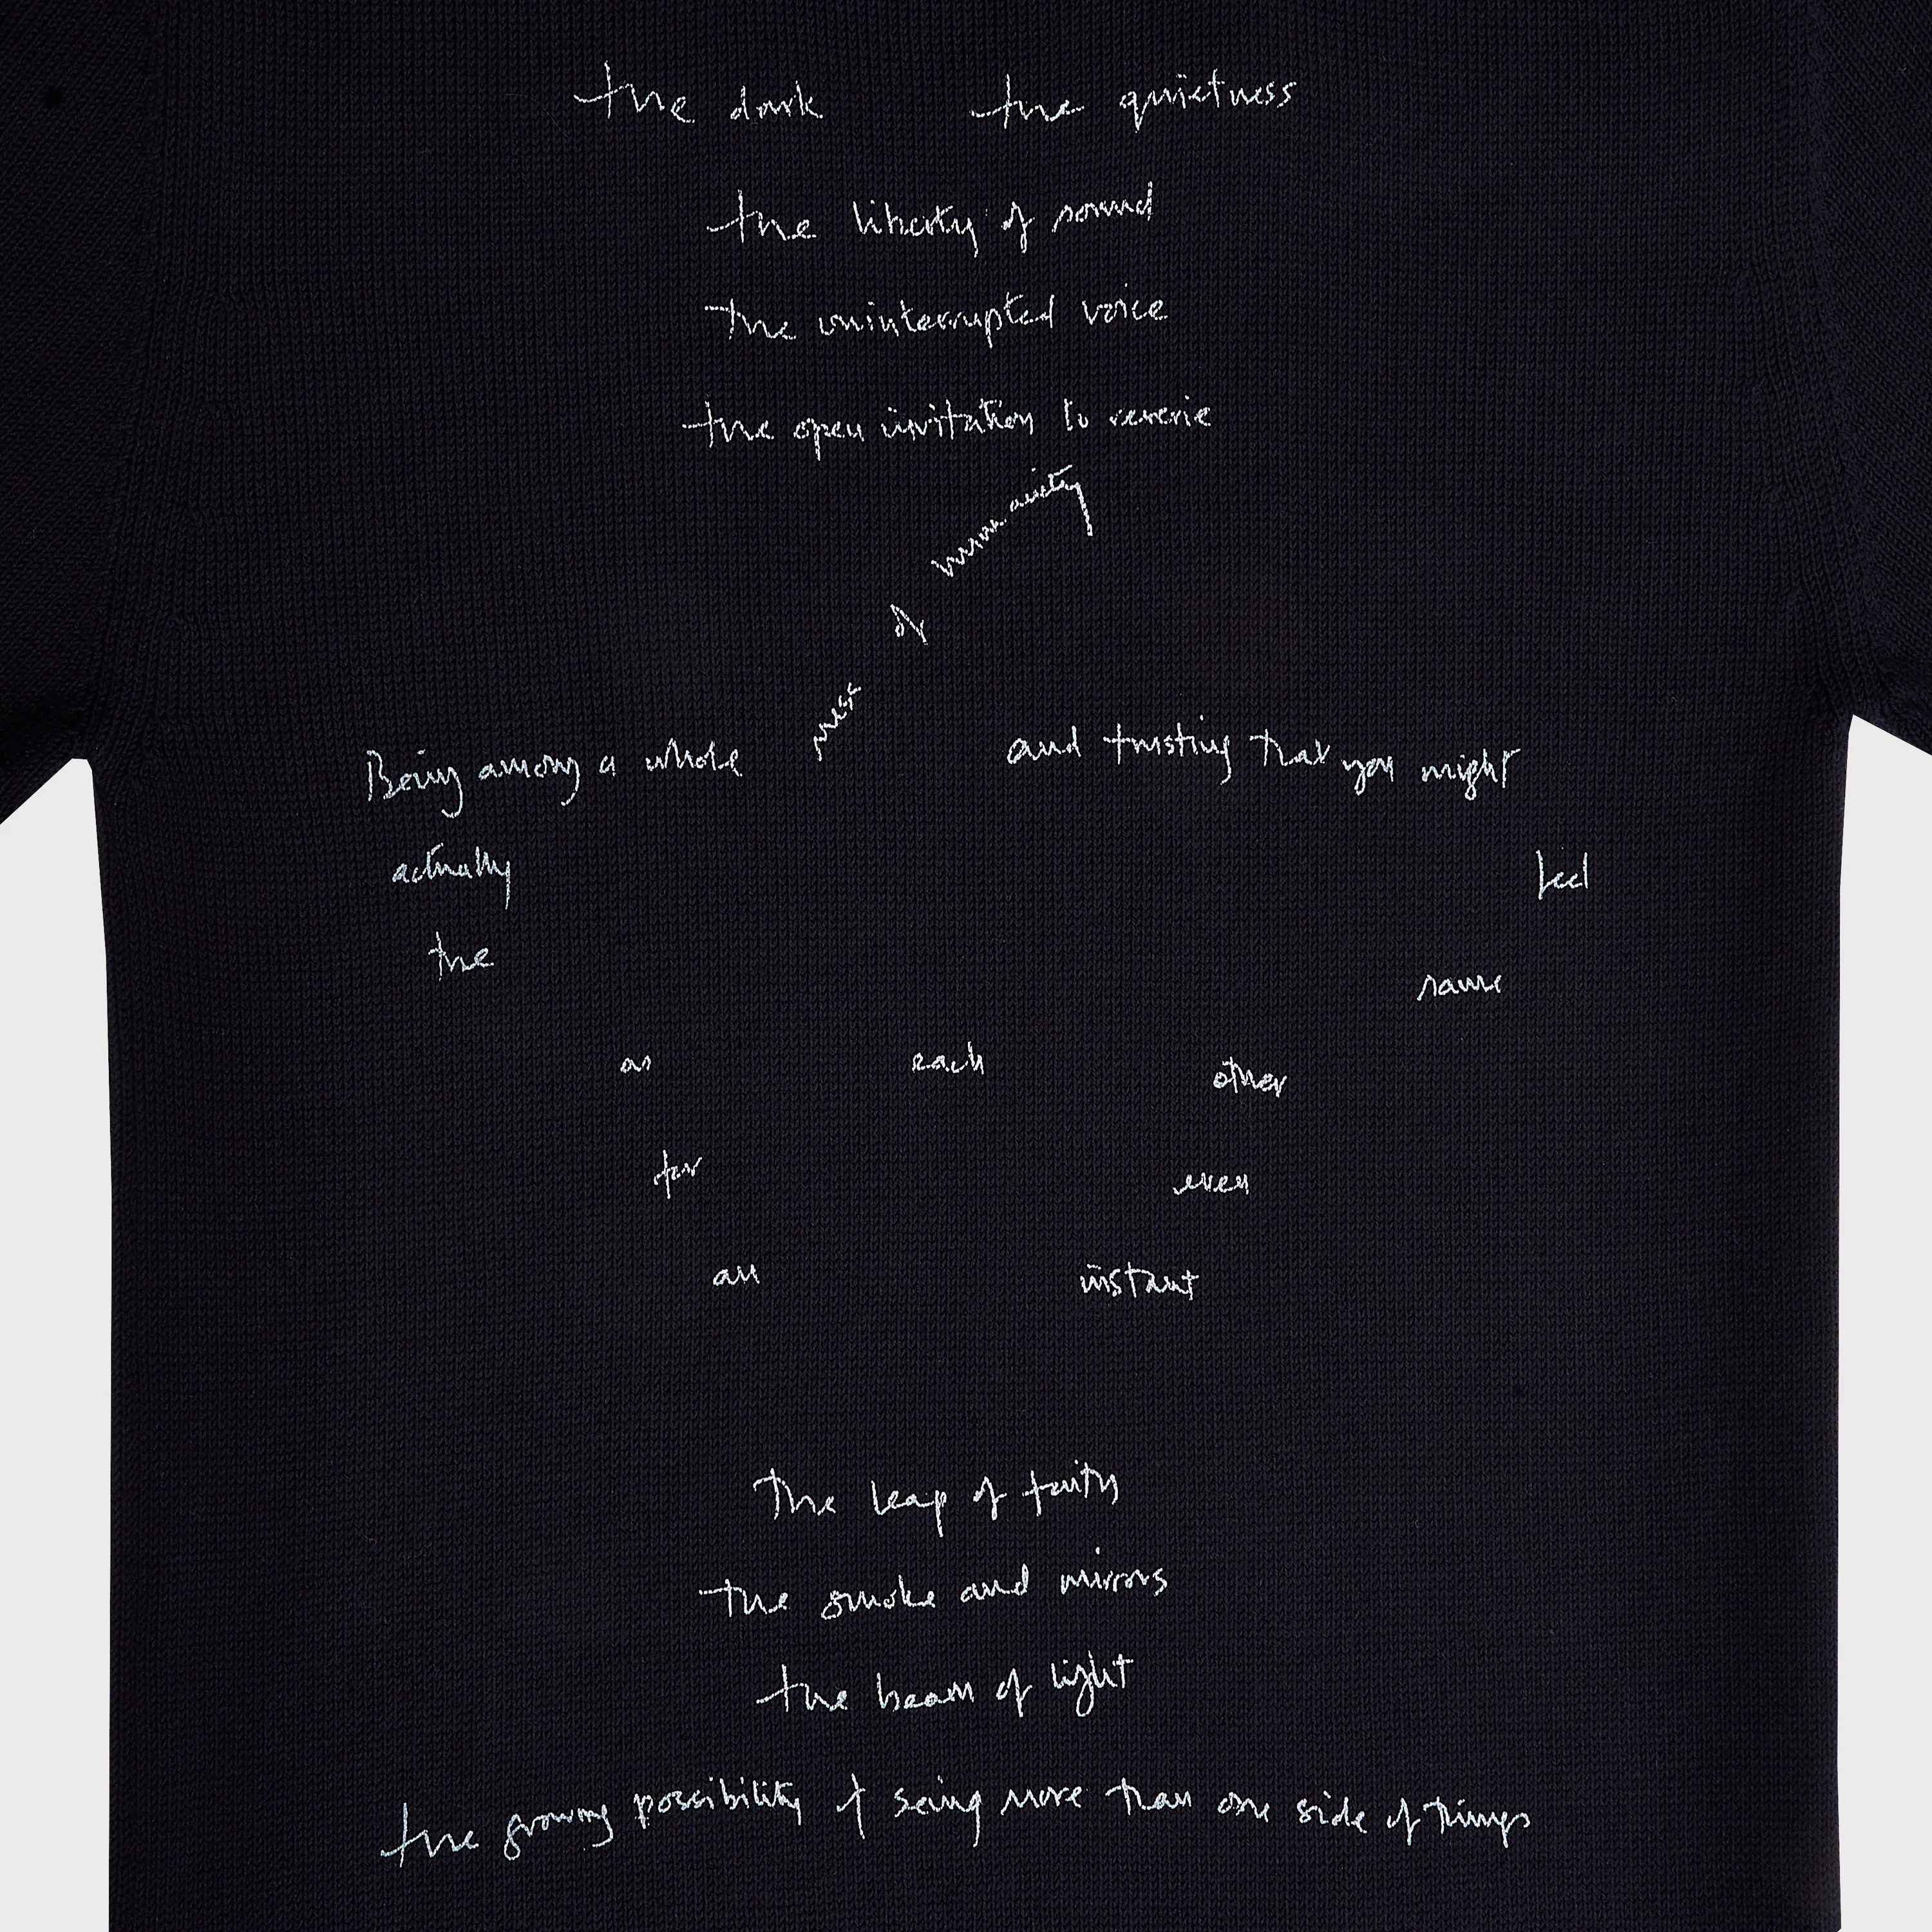 the dark the quietness
the liberty of sound
the uninterrupted voice
the open invitation to reverie
Being among a whole mess of and trusting that you might
actually feel
the same
as each other
for even
an instant
The leap of faith
the smoke and mirrors
the beam of light
the growing possibility of seing more than one side of things